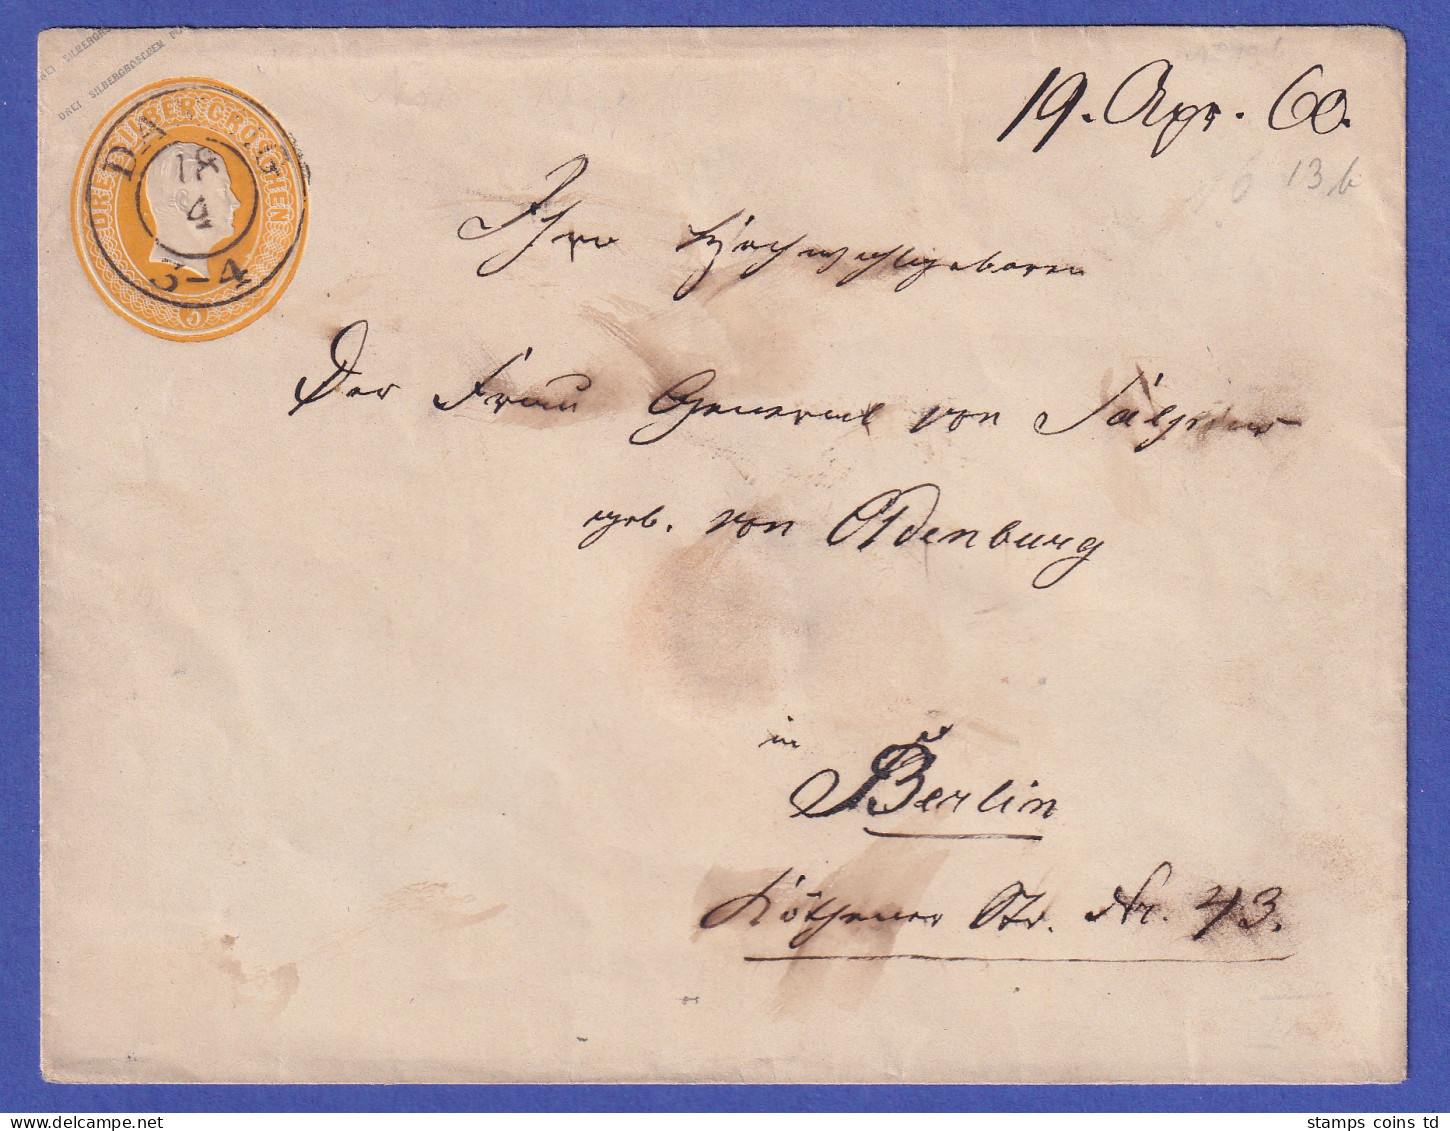 DREI SILBERGROSCHEN
DREI SILBERGROSCHEN
DREI SILBER GROSCHEN
3
DA
18
3-4
19. Apr. 60.
13 b
Ihro Hochwohlgeboren
Der Frau General von
geb. von Oldenburg
in
Berlin
Köthener Str. Nr. 43.
stamps coins td